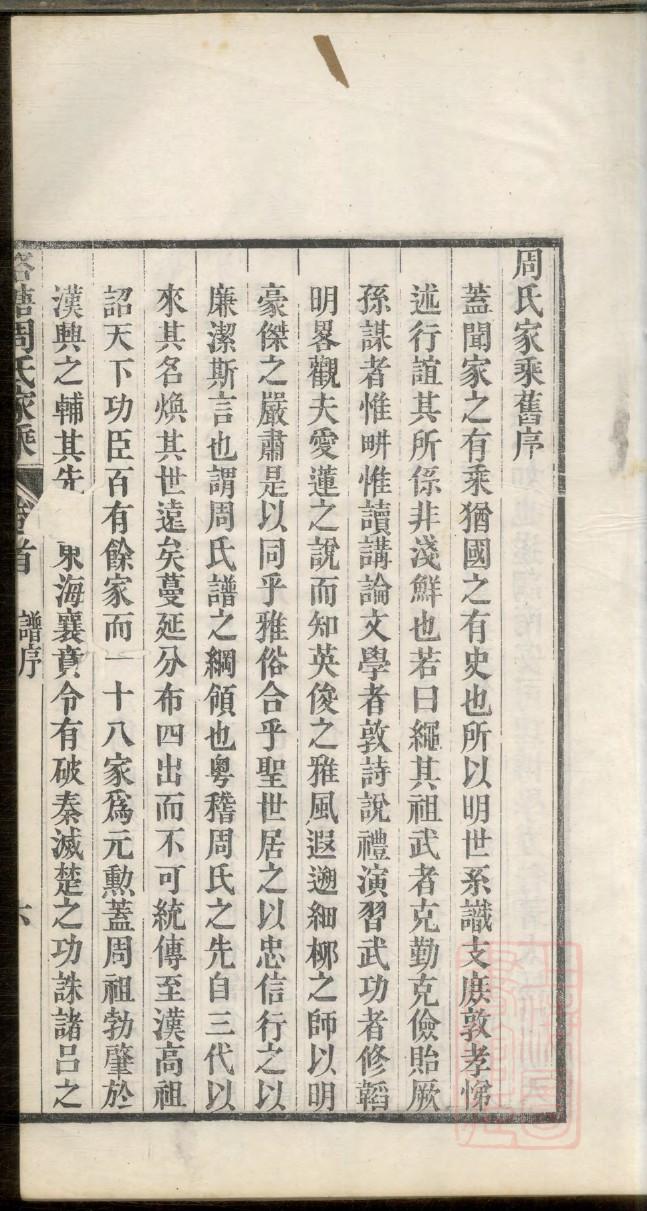 周氏家乘舊序
蓋聞家之有乘猶國之有史也所以明世系識支庶敦孝悌
述行誼其所係非淺鮮也若曰繩其祖武者克勤克儉貽厥
孫謀者惟畊惟讀講論文學者敦詩說禮演習武功者修韜
明畧觀夫愛蓮之說而知英俊之雅風遐遡細柳之師以明
豪傑之嚴肅是以同乎雅俗合乎聖世居之以忠信行之以
廉潔斯言也謂周氏譜之綱領也粵稽周氏之先自三代以
來其名煥其世遠矣蔓延分布四出而不可統傳至漢高祖
詔天下功臣百有餘家而一十八家爲元勳蓋周祖勃肇於
漢興之輔其先 東海襄賁令有破秦滅楚之功誅諸呂之
塘周氏家乘 卷首 譜序 六